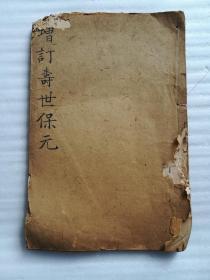 增訂壽世保元